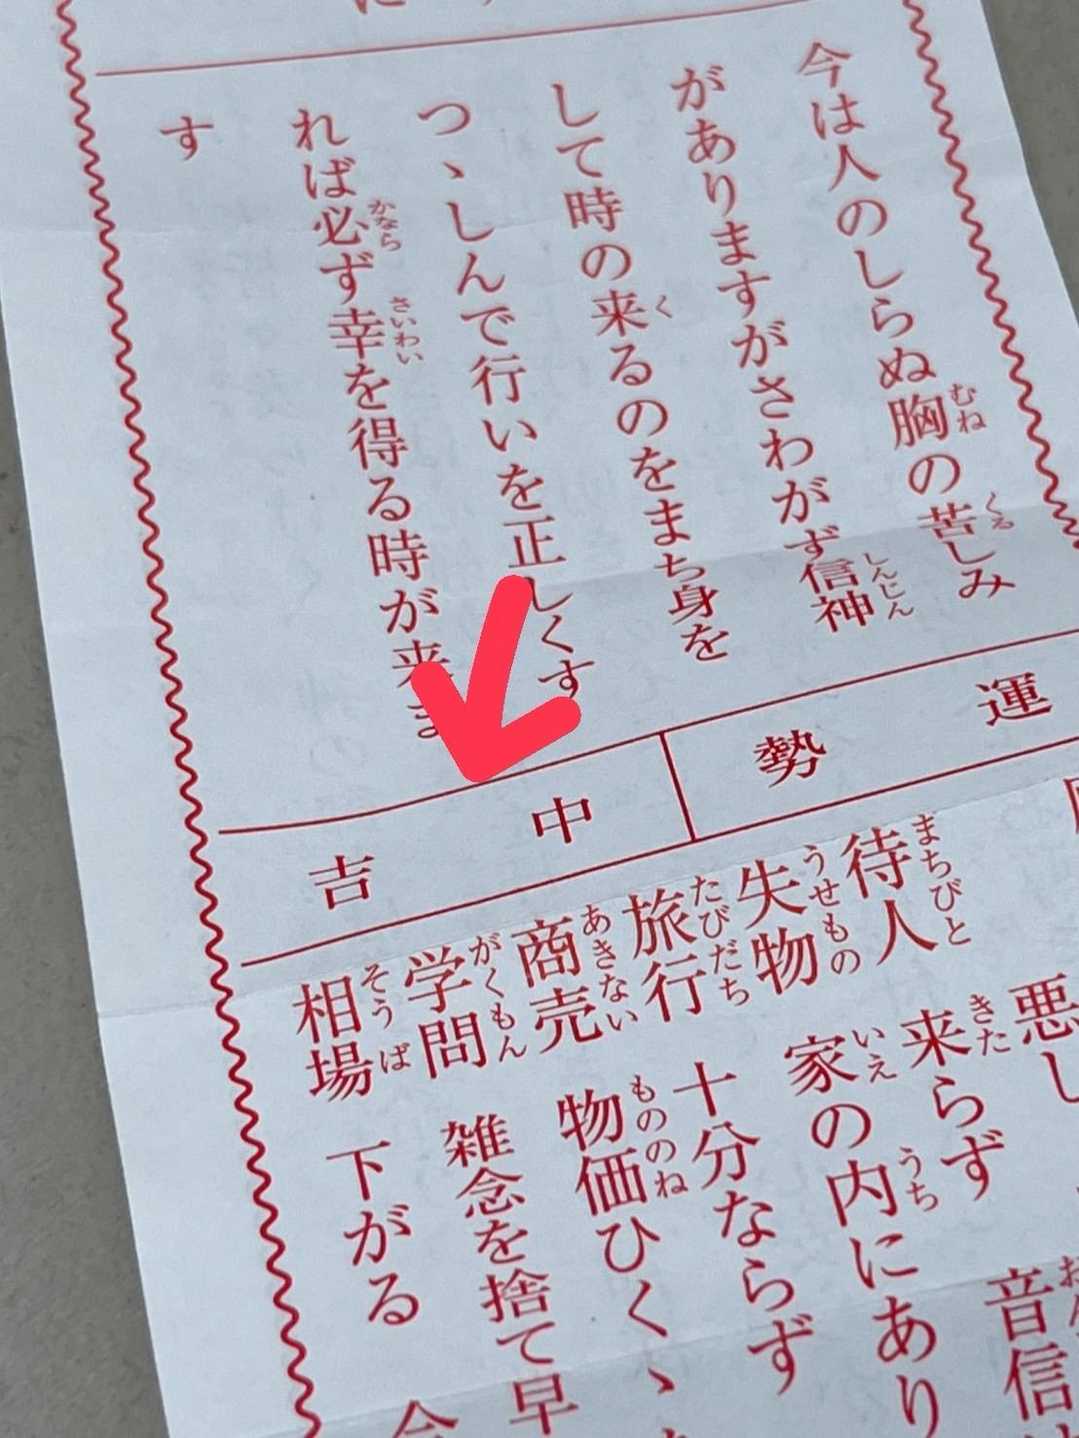 今は人のしらぬ胸の苦しみ
がありますがさわがず信神
して時の来るのをまち身を
つゝしんで行いを正しくす
れば必ず幸を得る時が来ま
す
運勢
中吉
悪し
待人 来らず 音信
失物 家の内にあり
旅行 十分ならず
商売 物価ひくゝ
学問 雑念を捨て早
相場 下がる